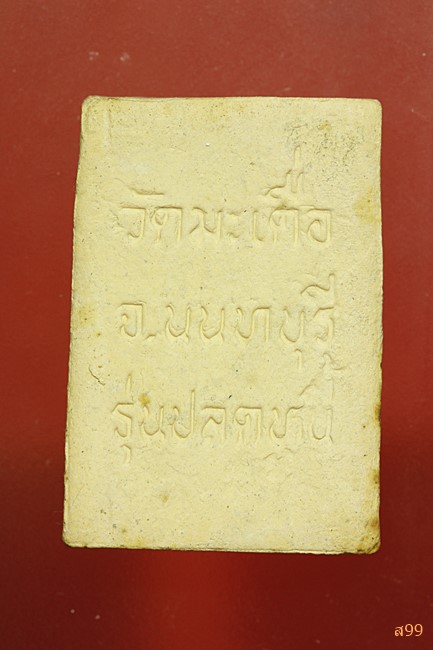 วัดมะเดื่อ
จ.นนทบุรี
รุ่นปลดหนี้
ส99